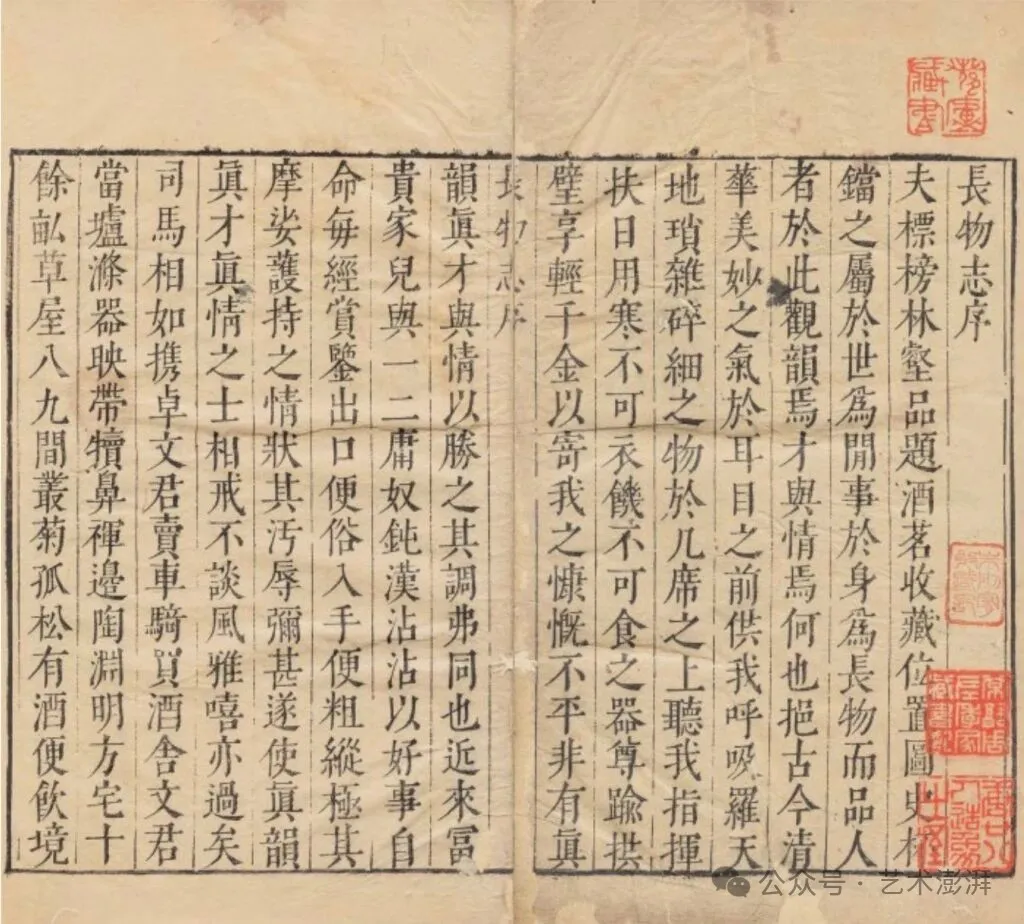 長物志序
夫標榜林壑品題酒茗收藏位置圖史杯
鐺之屬於世爲閒事於身爲長物而品人
者於此觀韻焉才與情焉何也挹古今清
華美妙之氣於耳目之前供我呼吸羅天
地瑣雜碎細之物於几席之上聽我指揮
扶日用寒不可衣饑不可食之器尊踰拱
璧享輕千金以寄我之慷慨不平非有眞
長物志序
韻眞才與情以勝之其調弗同也近來富
貴家兒與一二庸奴鈍漢沾沾以好事自
命每經賞鑒出口便俗入手便粗縱極其
摩娑護持之情狀其汚辱彌甚遂使眞韻
眞才眞情之士相戒不談風雅嘻亦過矣
司馬相如携卓文君賣車騎買酒舍文君
當壚滌器映帶犢鼻褌邊陶淵明方宅十
餘畝草屋八九間叢菊孤松有酒便飲境
藏書
公众号·艺术澎湃